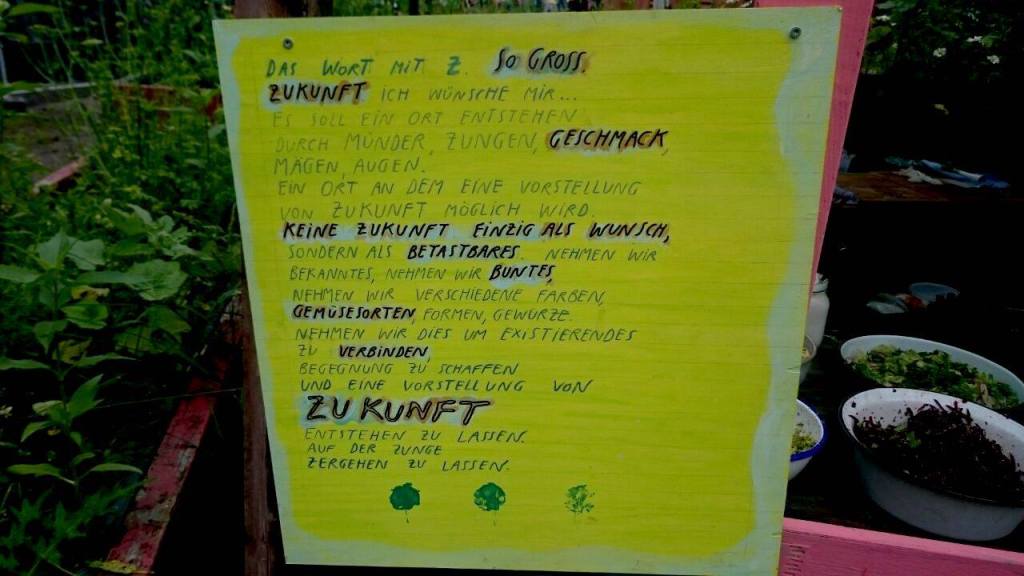 DAS WORT MIT Z. SO GROSS.
ZUKUNFT ICH WÜNSCHE MIR...
ES SOLL EIN ORT ENTSTEHEN
DURCH MÜNDER, ZUNGEN, GESCHMACK,
MÄGEN, AUGEN.
EIN ORT AN DEM EINE VORSTELLUNG
VON ZUKUNFT MÖGLICH WIRD.
KEINE ZUKUNFT EINZIG ALS WUNSCH,
SONDERN ALS BETASTBARES. NEHMEN WIR
BEKANNTES, NEHMEN WIR BUNTES,
NEHMEN WIR VERSCHIEDENE FARBEN,
GEMÜSESORTEN, FORMEN, GEWÜRZE.
NEHMEN WIR DIES UM EXISTIERENDES
ZU VERBINDEN,
BEGEGNUNG ZU SCHAFFEN
UND EINE VORSTELLUNG VON
ZUKUNFT
ENTSTEHEN ZU LASSEN.
AUF DER ZUNGE
ZERGEHEN ZU LASSEN.